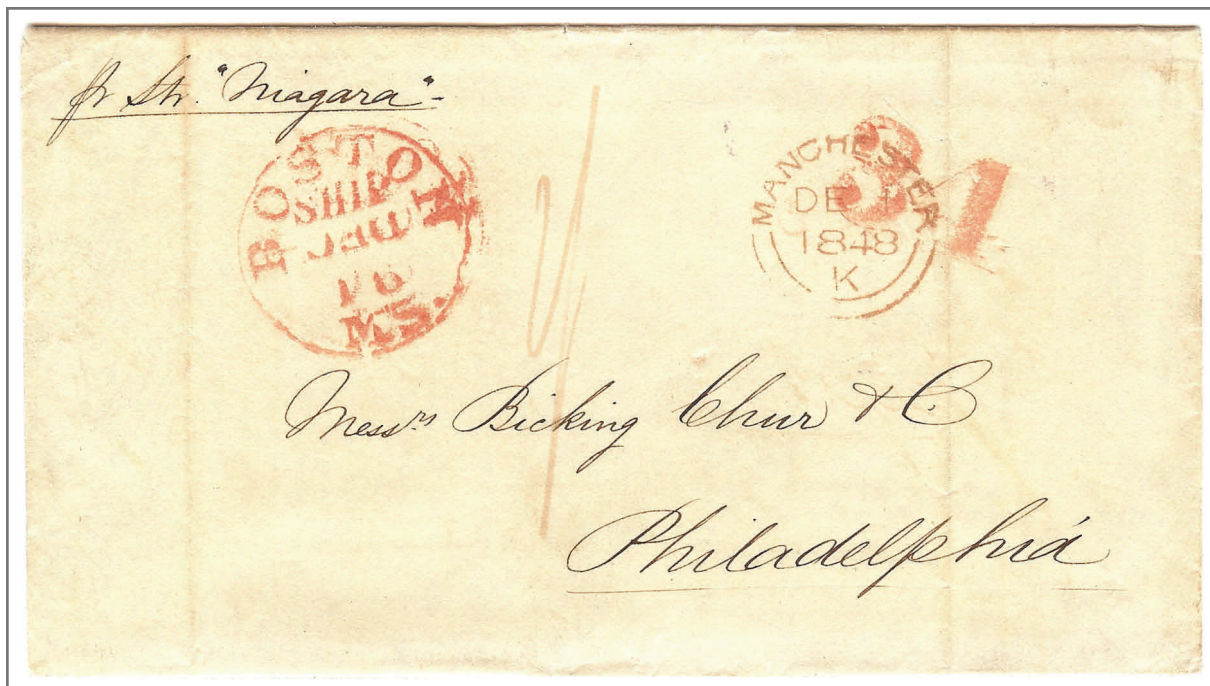 pr Str. "Niagara"
BOSTON
SHIP
DEC
16
MS.
1/
MANCHESTER
DE 1
1848
K
34
Messrs Bicking Chur & C.
Philadelphia